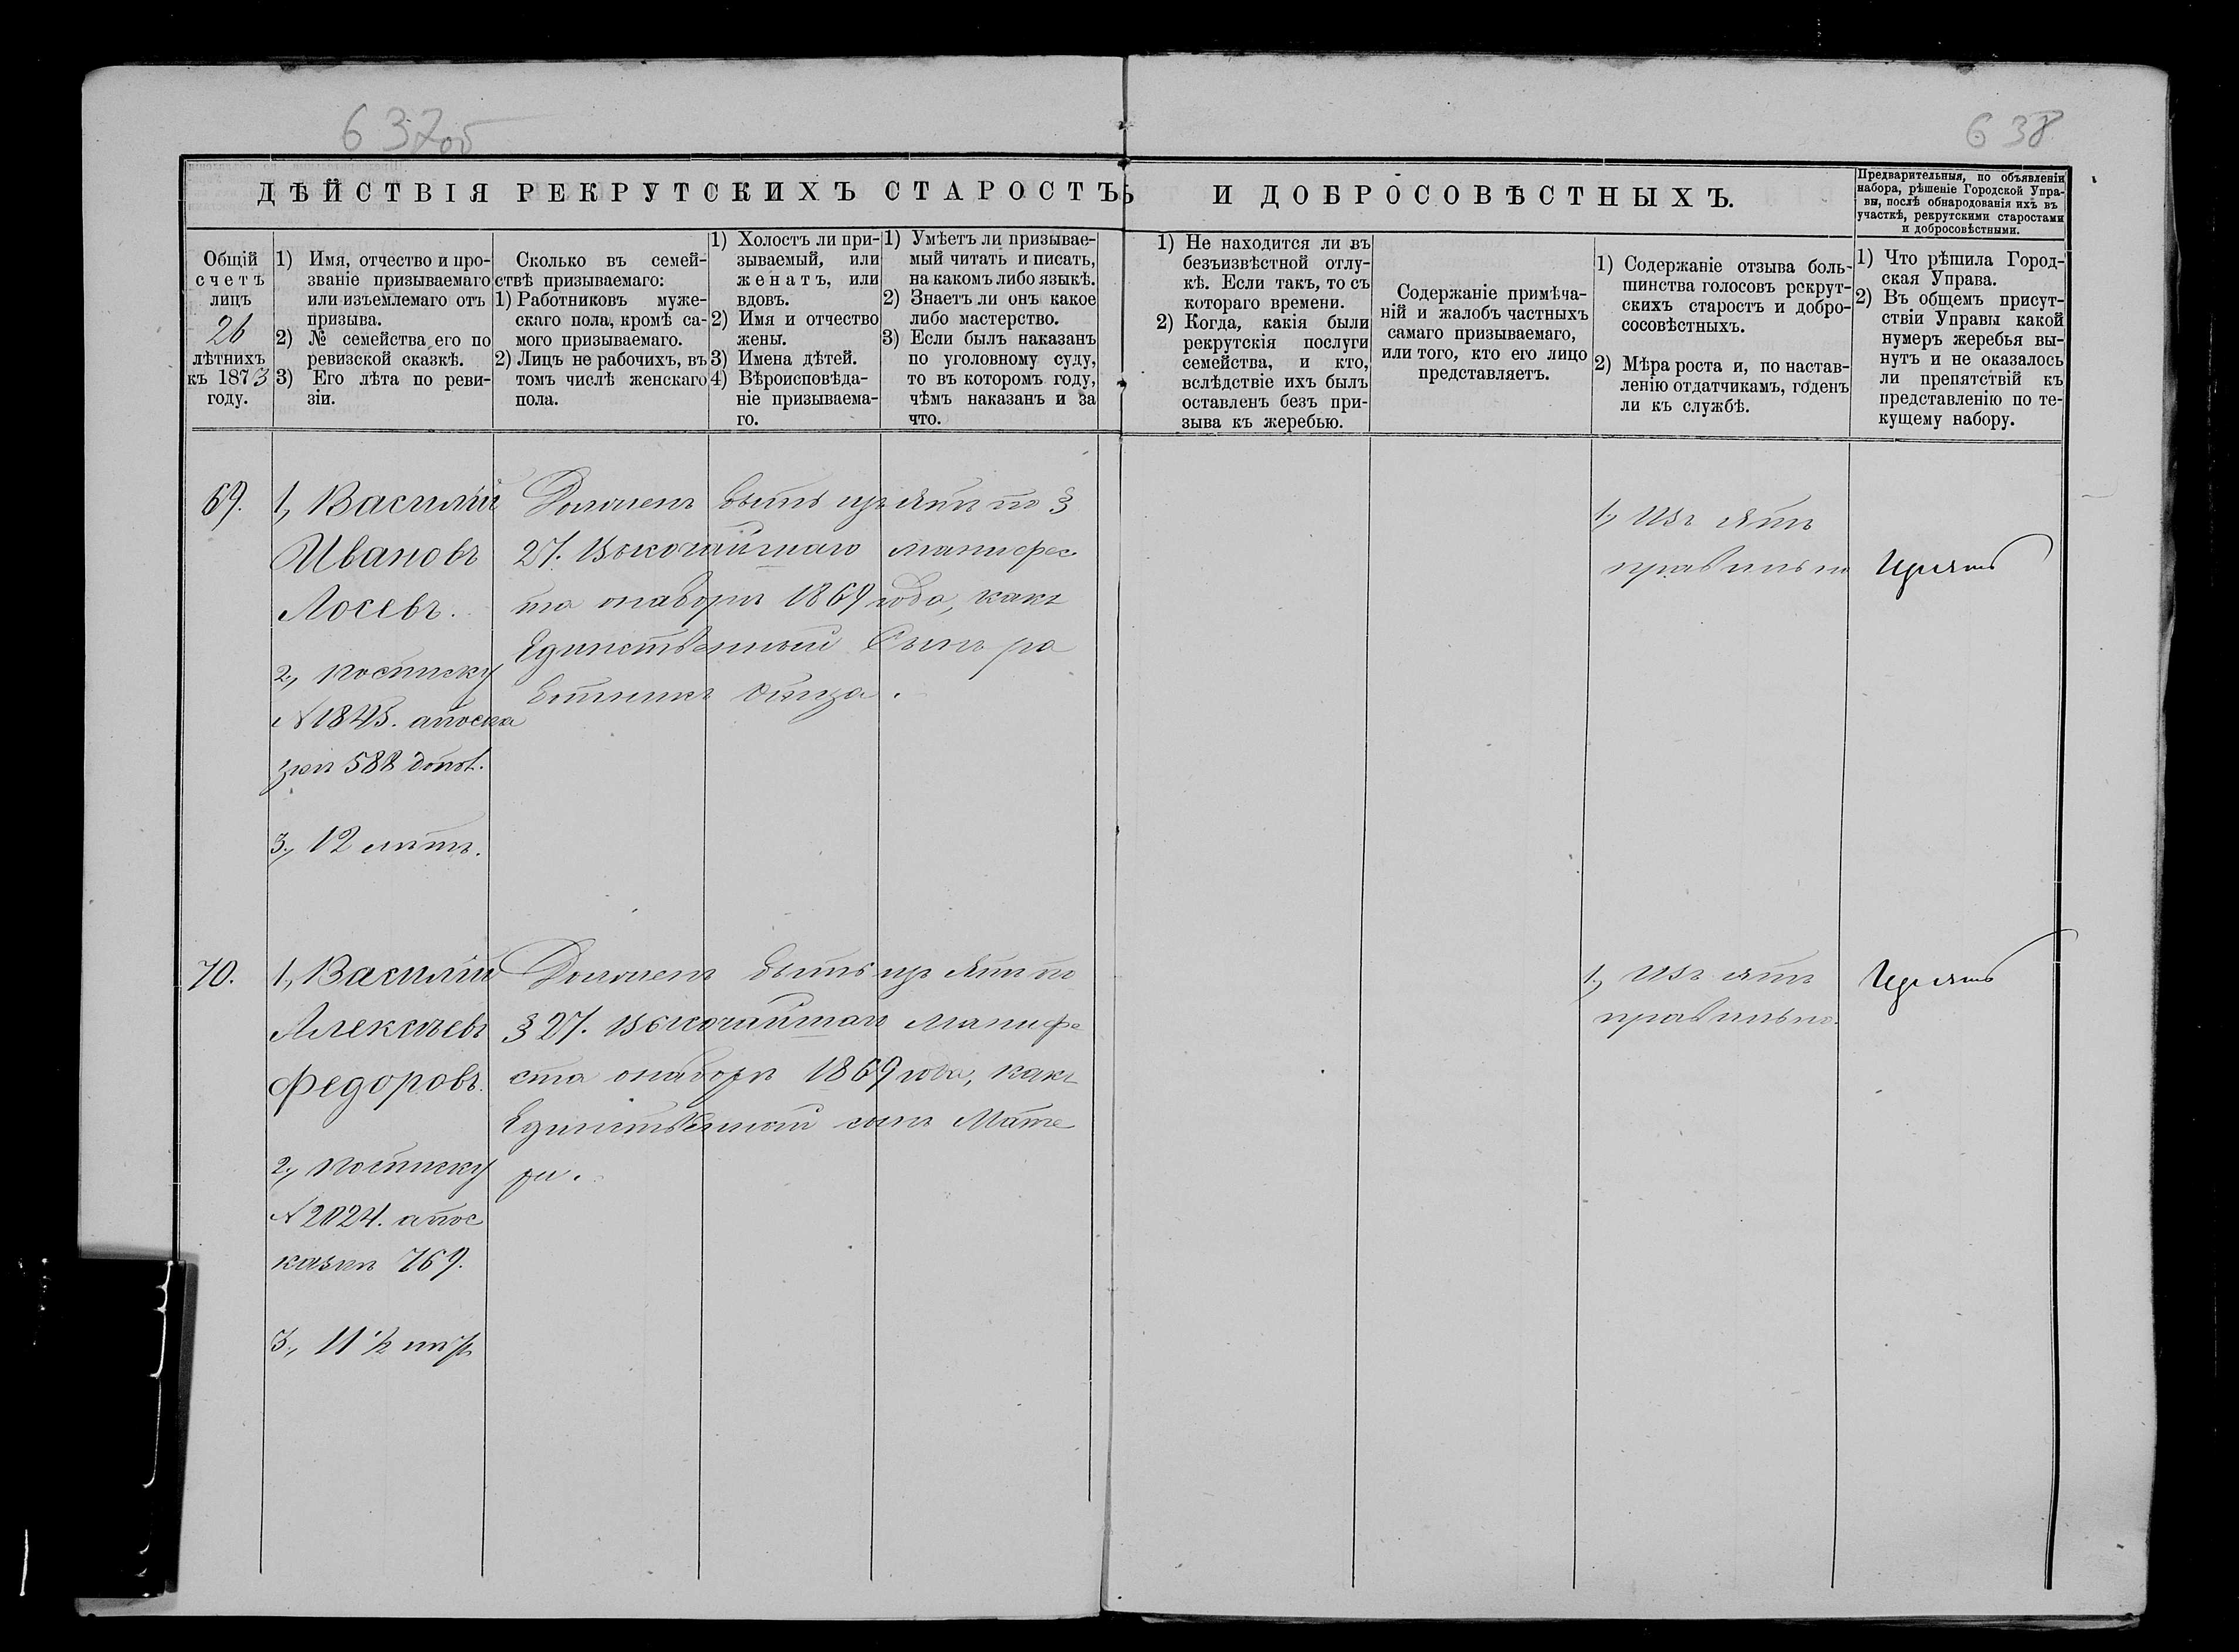 637об
638
ДѢЙСТВІЯ РЕКРУТСКИХЪ СТАРОСТЪ
И ДОБРОСОВѢСТНЫХЪ.
Предварительныя, по объявленіи
набора, рѣшеніе Городской Упра-
вы, послѣ обнародованія ихъ въ
участкѣ, рекрутскими старостами
и добросовѣстными.
Общій
счетъ
лицъ
26
лѣтнихъ
къ 1873
году.
1) Имя, отчество и про-
званіе призываемаго
или изъемлемаго отъ
призыва.
2) № семейства его по
ревизской сказкѣ.
3) Его лѣта по реви-
зіи.
Сколько въ семей-
ствѣ призываемаго:
1) Работниковъ муже-
скаго пола, кромѣ са-
мого призываемаго.
2) Лицъ не рабочихъ, въ
томъ числѣ женскаго
пола.
1) Холостъ ли при-
зываемый, или
женатъ, или
вдовъ.
2) Имя и отчество
жены.
3) Имена дѣтей.
4) Вѣроисповѣда-
ніе призываема-
го.
1) Умѣетъ ли призывае-
мый читать и писать,
на какомъ либо языкѣ.
2) Знаетъ ли онъ какое
либо мастерство.
3) Если былъ наказанъ
по уголовному суду,
то въ которомъ году,
чѣмъ наказанъ и за
что.
1) Не находится ли въ
безъизвѣстной отлу-
кѣ. Если такъ, то съ
котораго времени.
2) Когда, какія были
рекрутскія послуги
семейства, и кто,
вслѣдствіе ихъ былъ
оставленъ безъ при-
зыва къ жеребью.
Содержаніе примѣча-
ній и жалобъ частныхъ
самаго призываемаго,
или того, кто его лицо
представляетъ.
1) Содержаніе отзыва боль-
шинства голосовъ рекрут-
скихъ старостъ и добро-
сосовѣстныхъ.
2) Мѣра роста и, по настав-
ленію отдатчикамъ, годенъ
ли къ службѣ.
1) Что рѣшила Город-
ская Управа.
2) Въ общемъ присут-
ствіи Управы какой
нумеръ жеребья вы-
нутъ и не оказалось
ли препятствій къ
представленію по те-
кущему набору.
69.
1, Василій
Ивановъ
Лосевъ.
2, посписку
№ 1845. апоска
зкѣ 588 допол.
3, 12 лѣтъ.
Долженъ быть изъятъ по §
27. Высочайшаго манифес
та онаборѣ 1869 года, какъ
Единственный Сынъ ра
ботникъ отца.
1, Изъ ятъ
правильно
70.
1, Василій
Алексѣевъ
Федоровъ.
2, посписку
№ 2024. апос
казкѣ 769.
3, 11 1/2 лѣтъ
Долженъ быть изъ ятъ по
§ 27. Высочайшаго Манифе
ста онаборѣ 1869 года, какъ
Единственный сынъ Мате
ри.
1, Изъ ятъ
правильно.